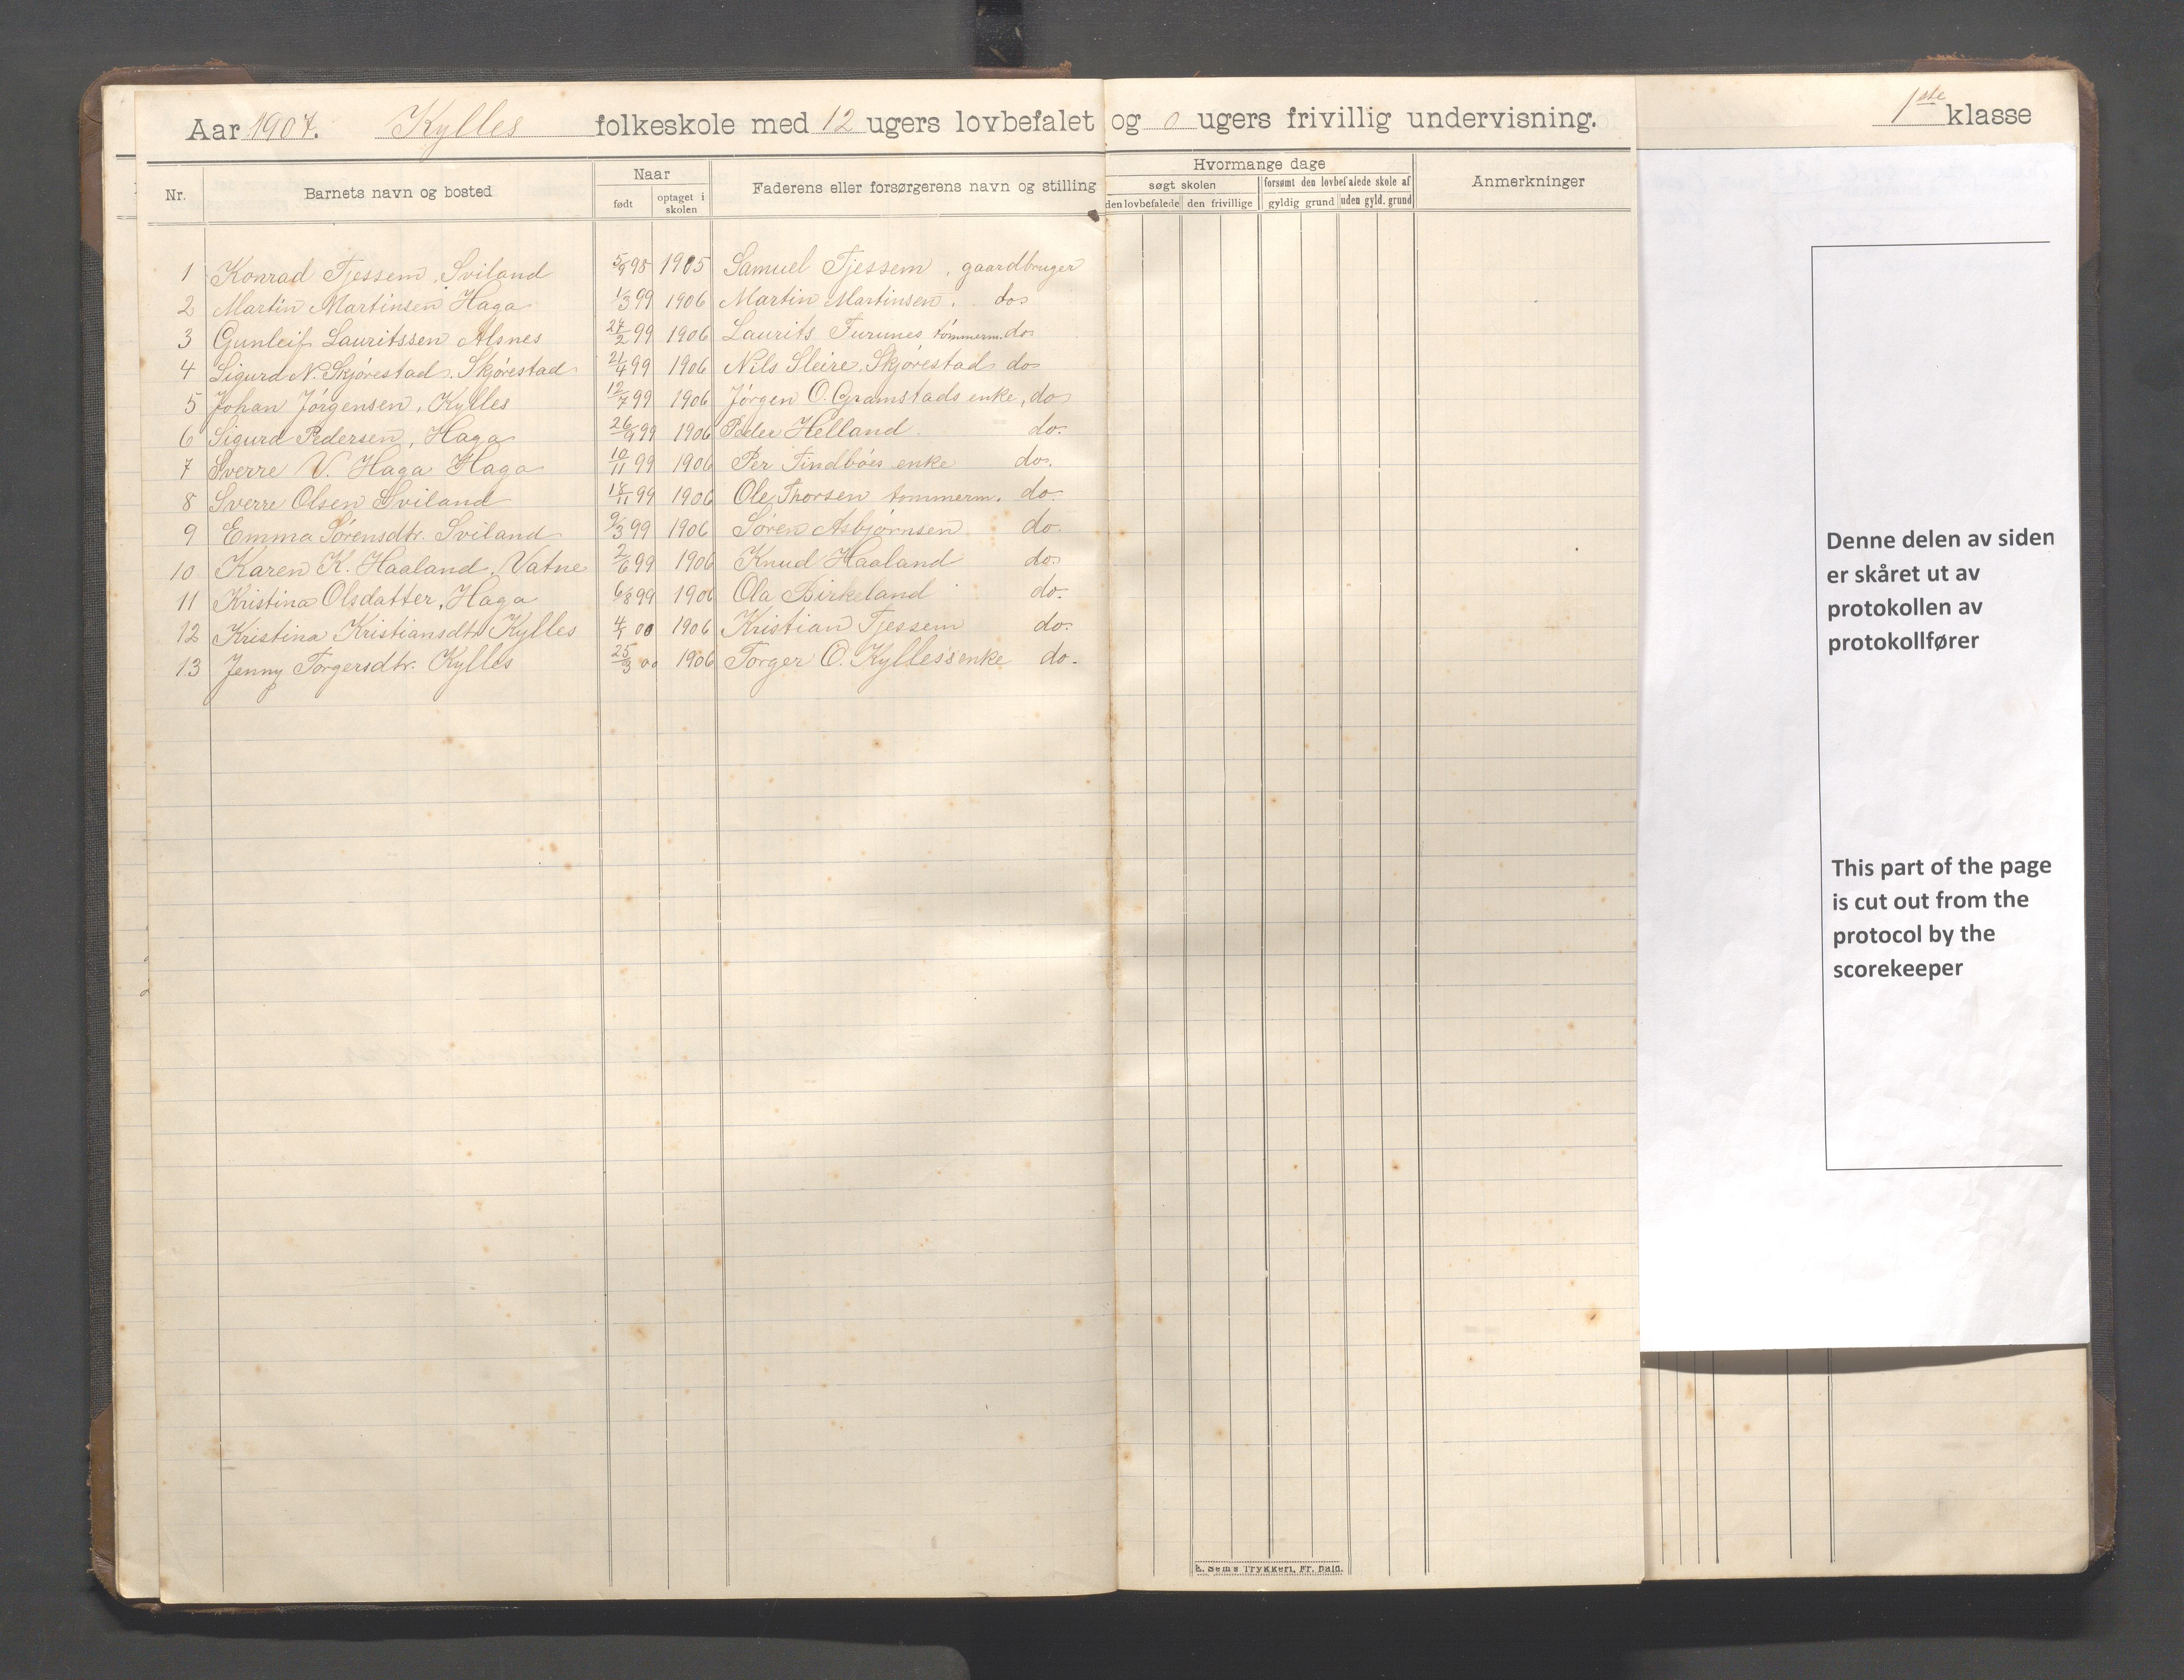 Aar 1907. Kylles folkeskole med 12 ugers lovbefalet og 0 ugers frivillig undervisning.
1ste klasse
Nr. Barnets navn og bosted Naar Faderens eller forsørgerens navn og stilling Hvormange dage Anmerkninger
født optaget i skolen søgt skolen forsømt den lovbefalede skole af
den lovbefalede den frivillige gyldig grund uden gyld. grund
1 Konrad Tjessem, Sviland 5/9 98 1905 Samuel Tjessem, gaardbruger
2 Martin Martinsen Haga 1/3 99 1906 Martin Martinsen. do
3 Gunleif Lauritssen Alsnes 27/2 99 1906 Laurits Furunes tömmerm. do
4 Sigurd N. Skjörestad, Skjörestad 21/4 99 1906 Nils Sleire, Skjörestad do
5 Johan Jörgensen, Kylles 12/7 99 1906 Jörgen O. Gramstads enke, do
6 Sigurd Pedersen, Haga 26/9 99 1906 Peder Helland do.
7 Sverre V. Haga Haga 10/11 99 1906 Per Tindböes enke do.
8 Sverre Olsen Sviland 18/11 99 1906 Ole Thorsen tommerm. do.
9 Emma Sörensdtr. Sviland 9/3 99 1906 Sören Asbjörnsen do.
10 Karen K. Haaland, Vatne 2/6 99 1906 Knud Haaland do.
11 Kristina Olsdatter, Haga 6/8 99 1906 Ola Birkeland do.
12 Kristina Kristiansdtr Kylles 4/1 00 1906 Kristian Tjessem do.
13 Jenny Torgersdtr. Kylles 25/3 00 1906 Torger O. Kylles's enke do.
Denne delen av siden
er skåret ut av
protokollen av
protokollfører
This part of the page
is cut out from the
protocol by the
scorekeeper